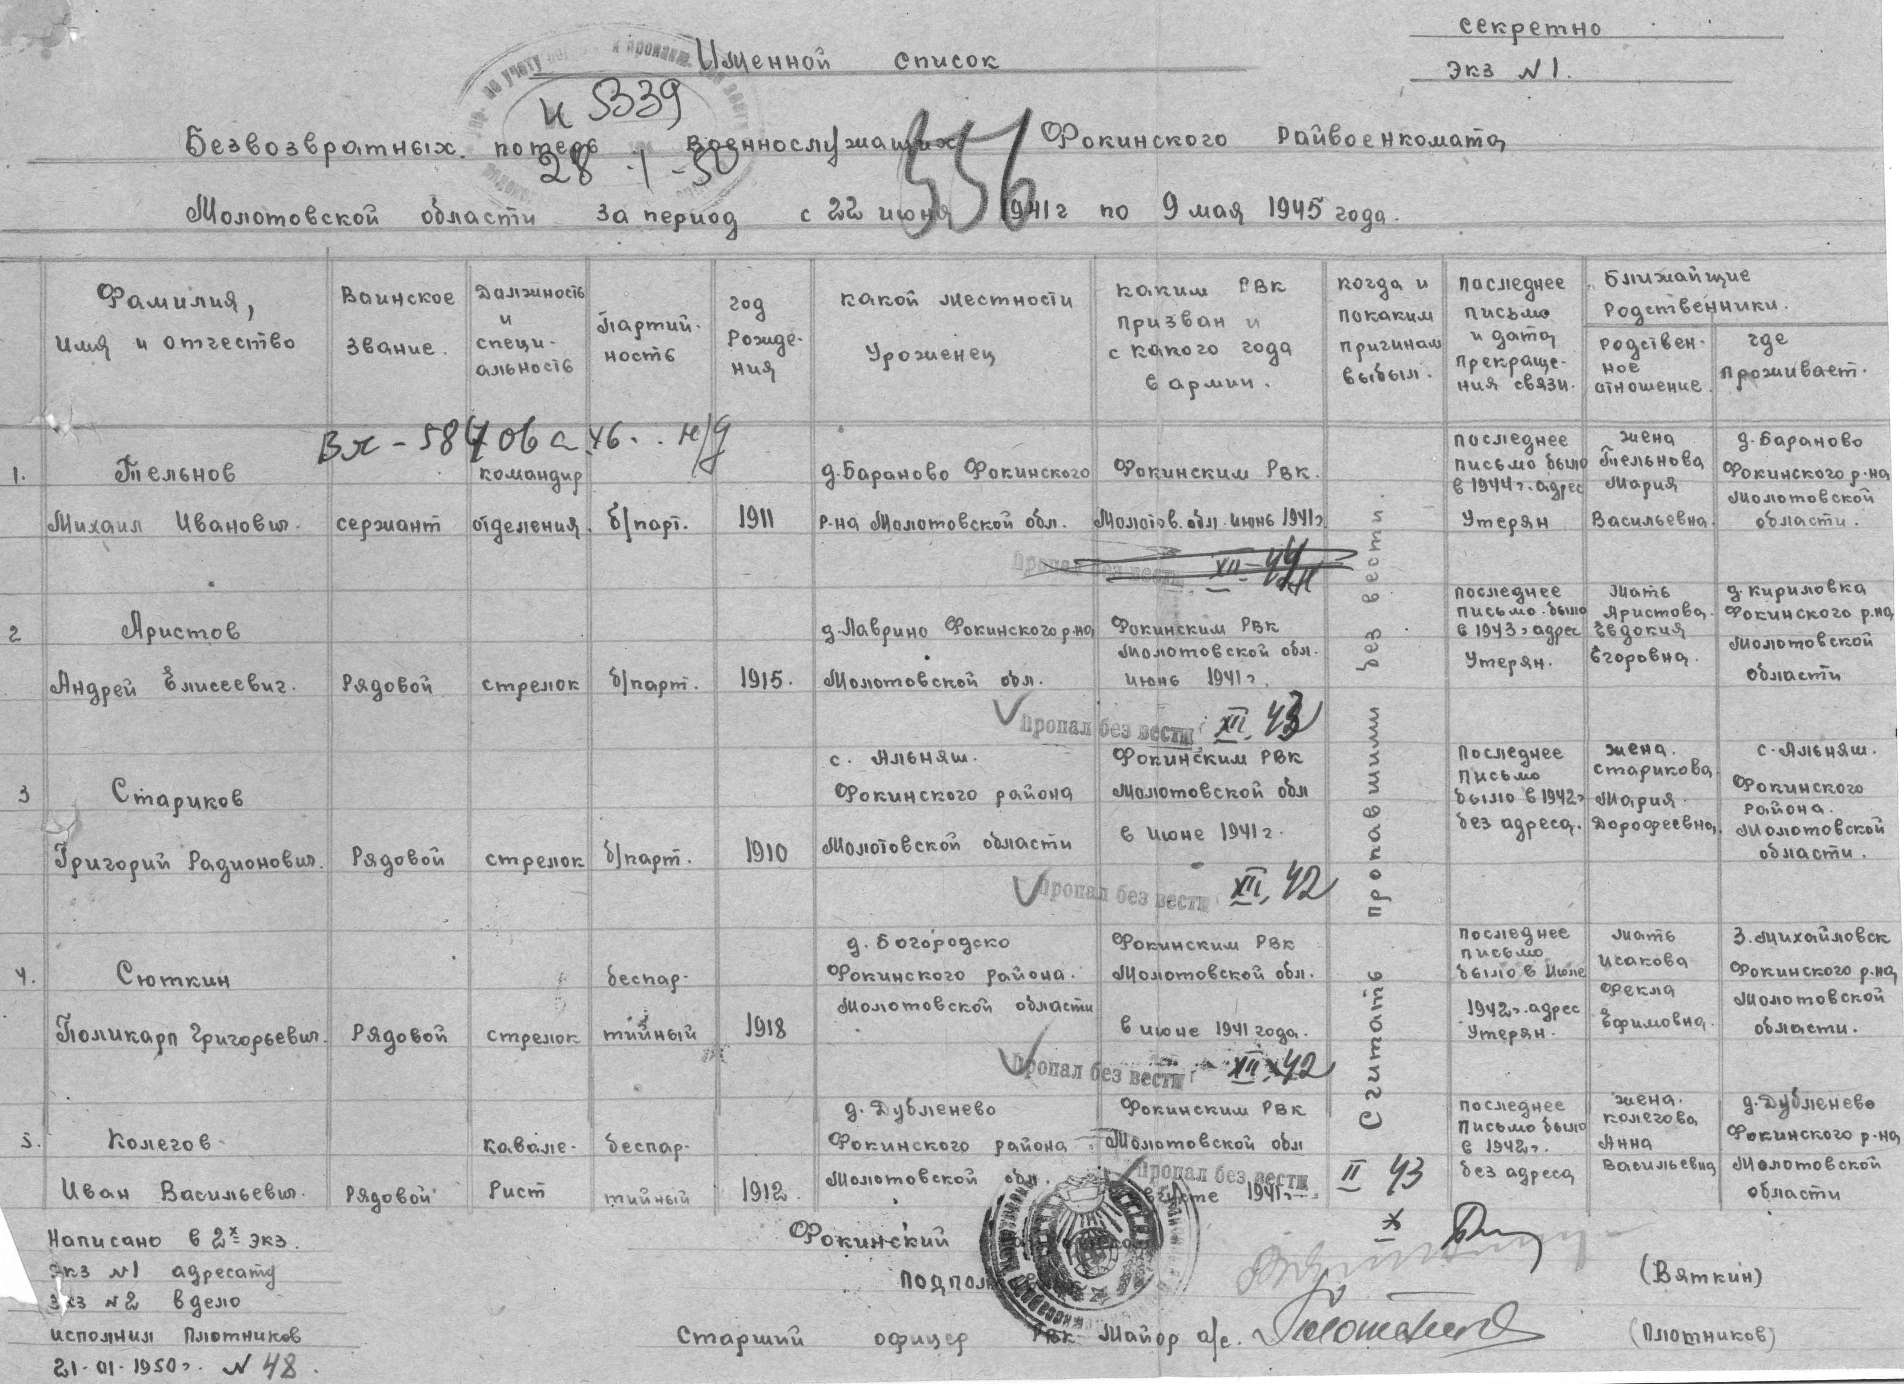 секретно
Экз N 1.
Именной список
и 5339
28-1-50
556
Безвозвратных потерь военнослужащих Фокинского Райвоенкомата
Молотовской области за период с 22 июня 1941г по 9 мая 1945 года.
Фамилия,
имя и отчество
Воинское
звание.
Должность
и
специ-
альность
Партий-
ность
год
Рожде-
ния
какой местности
Уроженец
каким РВК
призван и
с какого года
в армии.
когда и
по каким
причинам
выбыл.
последнее
письмо
и дата
прекраще-
ния связи.
Ближайшие
родственники.
Родствен-
ное
отношение.
где
проживает.
1.
Тельнов
Михаил Иванович.
сержант
командир
отделения.
б/парт.
1911
д. Бараново Фокинского
р-на Молотовской обл.
Фокинским РВК.
Молотов. обл. июнь 1941г
Пропал без вести XII-44
последнее
письмо было
в 1944г. адрес
Утерян
жена
Тельнова
Мария
Васильевна.
д. Бараново
Фокинского р-на
Молотовской
области.
2
Аристов
Андрей Елисеевич.
Рядовой
стрелок
б/парт.
1915.
д. Лаврино Фокинского р-на
Молотовской обл.
Фокинским РВК
Молотовской обл.
июнь 1941г.
Пропал без вести XII. 43
последнее
письмо было
в 1943г адрес
Утерян.
Мать
Аристова
Евдокия
Егоровна.
д. Кириловка
Фокинского р-на
Молотовской
области
3
Стариков
Григорий Радионович.
Рядовой
стрелок
б/парт.
1910
с. Альняш.
Фокинского района
Молотовской области
Фокинским РВК
Молотовской обл
в июне 1941г.
Пропал без вести XII, 42
Последнее
письмо
было в 1942г
без адреса.
жена.
Старикова
Мария.
Дорофеевна.
с. Альняш.
Фокинского
района.
Молотовской
области.
4.
Сюткин
Поликарп Григорьевич.
Рядовой
стрелок
беспар-
тийный
1918
д. Богородско
Фокинского района.
Молотовской области
Фокинским РВК
Молотовской обл.
в июне 1941 года.
Пропал без вести XII. 42
последнее
письмо
было в Июле
1942г. адрес
Утерян.
Мать
Исакова
Фекла
Ефимовна.
з. Михайловск
Фокинского р-на
Молотовской
области.
5.
Колегов
Иван Васильевич.
Рядовой
кавале-
рист
беспар-
тийный
1912.
д. Дубленево
Фокинского района
Молотовской обл.
Фокинским РВК
Молотовской обл
августе 1941г
Пропал без вести II 43
последнее
письмо было
в 1942г.
без адреса
жена.
Колегова
Анна
Васильевна
д. Дубленево
Фокинского р-на
Молотовской
области
Считать пропавшими без вести.
Написано в 2х экз.
Экз N1 адресату
Экз N2 в дело
исполнил Плотников
21-01-1950г. N 48.
Фокинский
(Вяткин)
Старший офицер РВК Майор а/с.
(Плотников)